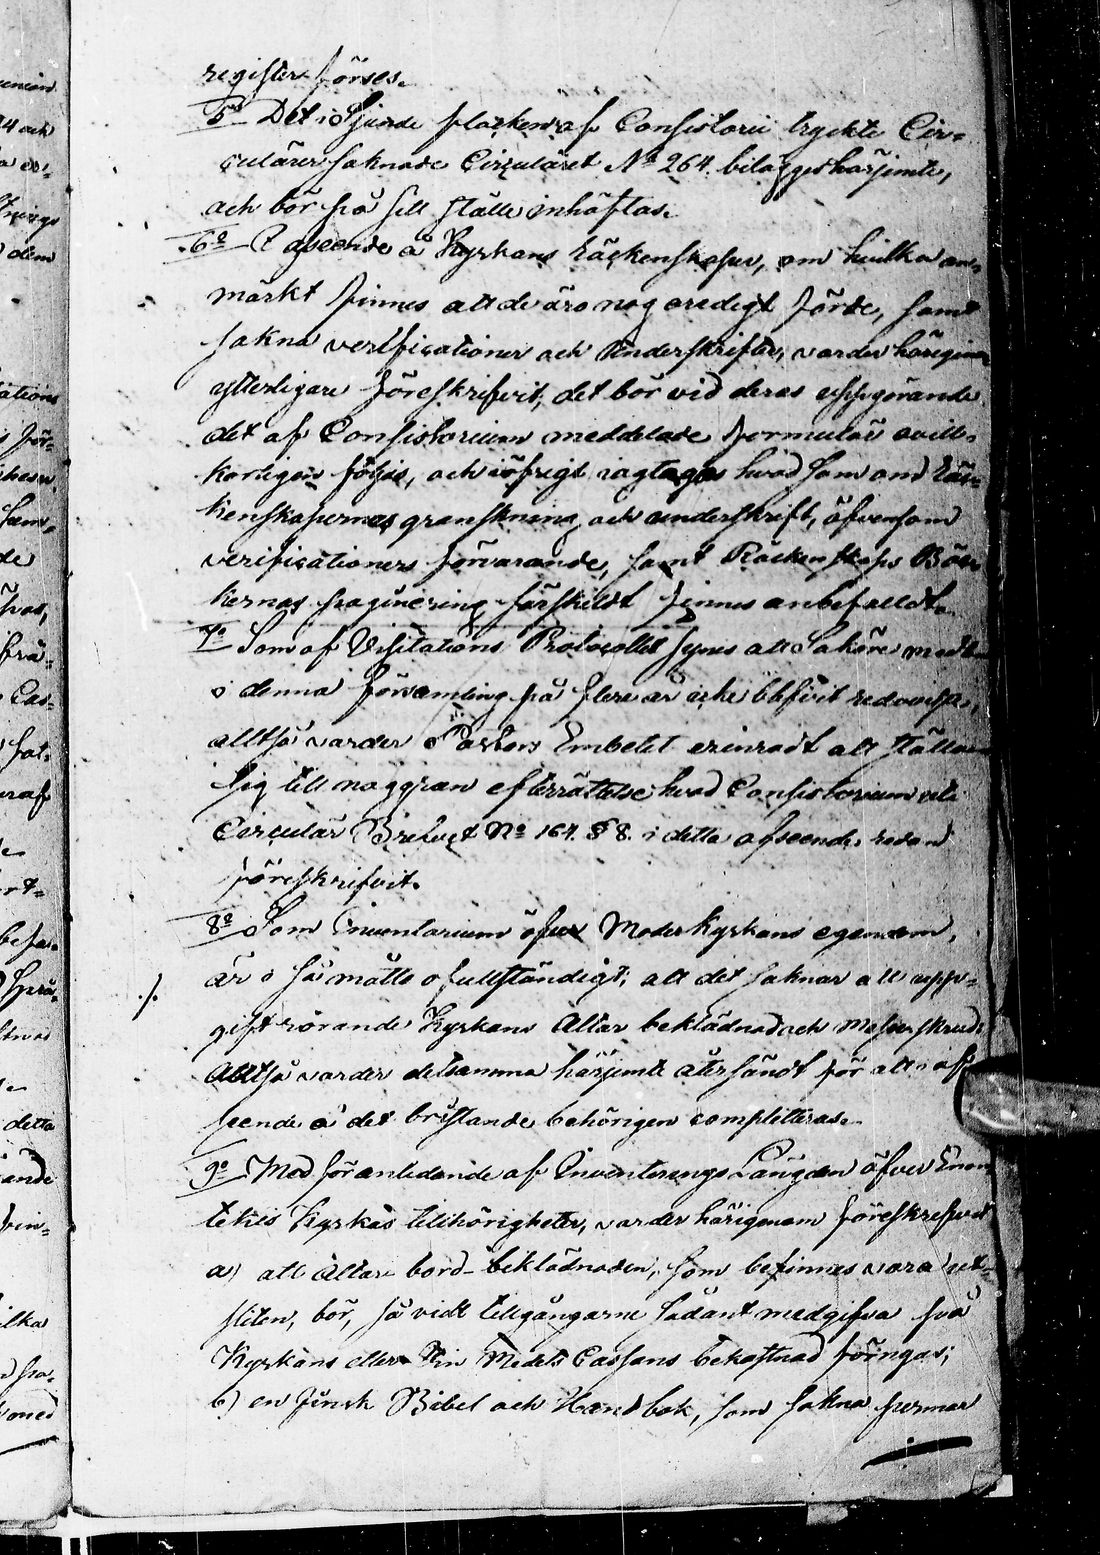 register förses.
5º Det i Sjunde flocken af Consistorii tryckte Cir-
culärer saknade Circuläret Nº 264. bilägges härjemte,
och bör på sitt ställe inhäftas.
6º I afseende å Kyrkans räckenskaper, om hvilka an-
märkt finnes att de äro nog oredigt förde, samt
sakna verificationer och underskrifter, varder härigenom
ytterligare föreskrifvit, det bör vid deras uppgörande
det af Consistorium meddelade formulär ovill-
korligen följas, och i öfrigt iagtagas hvad som om räc-
kenskapernas granskning och underskrift, äfvensom
verificationers förvarande, samt Räckenskaps Böc-
kernas paginering särskildt finnes anbefalldt.
7º Som af Visitations Protocollet synes att Saköre medlen
i denna församling på flere år icke blifvit redovista,
alltså varder Pastors Embetet erinradt att ställa
sig till noggran efterrättelse hvad Consistorium uti
Circulär Brefvet Nº 164. § 8. i detta afseende redan
föreskrifvit.
8º Som Inventarium öfver Moder Kyrkans egendom,
./. är i så måtto ofullständigt, att det saknar all upp-
gift rörande Kyrkans Altar beklädnad och Messeskrud,
Alltså varder detsamma härjemte återsändt för att i af-
seende å det bristande behörigen completteras.
9º Med föranledande af Inventerings Längden öfver Enon-
tekis Kyrkas tillhörigheter, varder härigenom föreskrifvet
a) att Altare bord-beklädnaden, som befinnes vara ut-
sliten, bör, så vidt tillgångarne sådant medgifva på
Kyrkans eller Vin Medels Cassans bekostnad förnyas;
b) en finsk Bibel och Handbok, som sakna permar